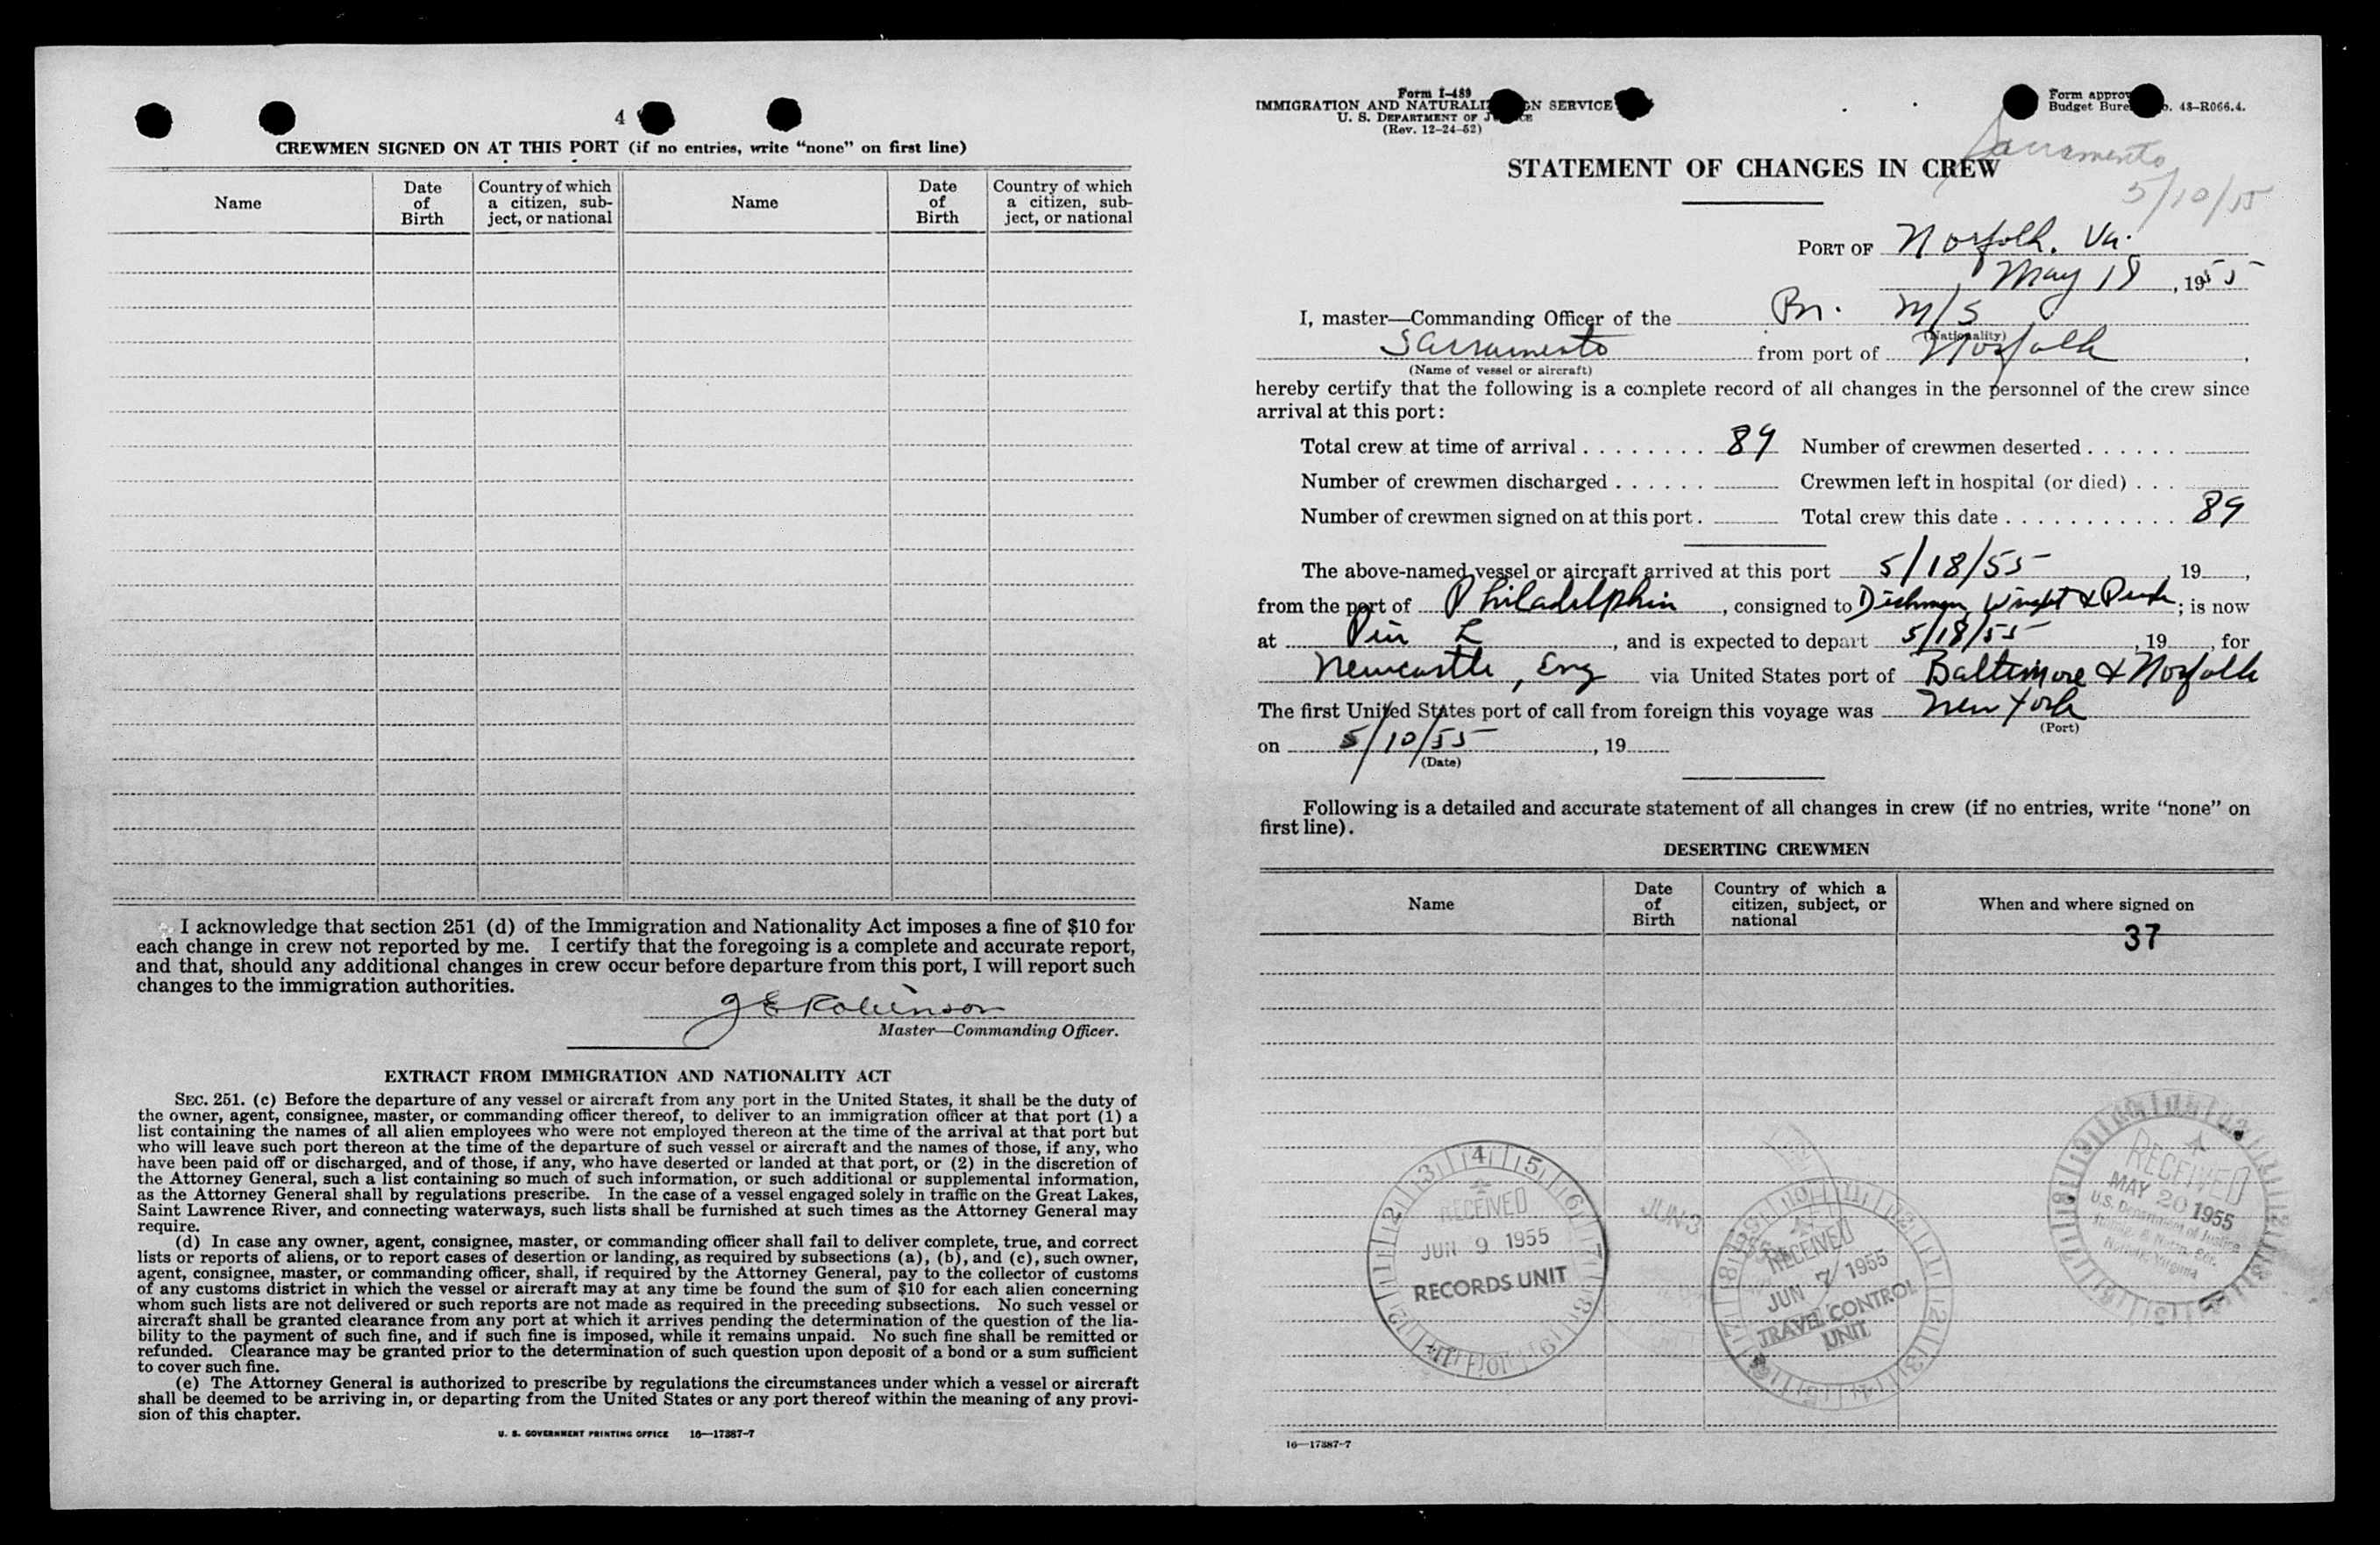 4
CREWMEN SIGNED ON AT THIS PORT (if no entries, write “none” on first line)
Name
Date of Birth
Country of which a citizen, sub-ject, or national
Name
Date of Birth
Country of which a citizen, sub-ject, or national
I acknowledge that section 251 (d) of the Immigration and Nationality Act imposes a fine of $10 for
each change in crew not reported by me. I certify that the foregoing is a complete and accurate report,
and that, should any additional changes in crew occur before departure from this port, I will report such
changes to the immigration authorities.
J E Robinson
Master—Commanding Officer.
EXTRACT FROM IMMIGRATION AND NATIONALITY ACT
SEC. 251. (c) Before the departure of any vessel or aircraft from any port in the United States, it shall be the duty of
the owner, agent, consignee, master, or commanding officer thereof, to deliver to an immigration officer at that port (1) a
list containing the names of all alien employees who were not employed thereon at the time of the arrival at that port but
who will leave such port thereon at the time of the departure of such vessel or aircraft and the names of those, if any, who
have been paid off or discharged, and of those, if any, who have deserted or landed at that port, or (2) in the discretion of
the Attorney General, such a list containing so much of such information, or such additional or supplemental information,
as the Attorney General shall by regulations prescribe. In the case of a vessel engaged solely in traffic on the Great Lakes,
Saint Lawrence River, and connecting waterways, such lists shall be furnished at such times as the Attorney General may
require.
(d) In case any owner, agent, consignee, master, or commanding officer shall fail to deliver complete, true, and correct
lists or reports of aliens, or to report cases of desertion or landing, as required by subsections (a), (b), and (c), such owner,
agent, consignee, master, or commanding officer, shall, if required by the Attorney General, pay to the collector of customs
of any customs district in which the vessel or aircraft may at any time be found the sum of $10 for each alien concerning
whom such lists are not delivered or such reports are not made as required in the preceding subsections. No such vessel or
aircraft shall be granted clearance from any port at which it arrives pending the determination of the question of the lia-
bility to the payment of such fine, and if such fine is imposed, while it remains unpaid. No such fine shall be remitted or
refunded. Clearance may be granted prior to the determination of such question upon deposit of a bond or a sum sufficient
to cover such fine.
(e) The Attorney General is authorized to prescribe by regulations the circumstances under which a vessel or aircraft
shall be deemed to be arriving in, or departing from the United States or any port thereof within the meaning of any provi-
sion of this chapter.
U. S. GOVERNMENT PRINTING OFFICE 16—17387-7
Form I-489
IMMIGRATION AND SERVICE
U. S. DEPARTMENT OF
(Rev. 12-24-52)
Form
Budget 43-R066.4.
Sacramento
5/10/55
STATEMENT OF CHANGES IN CREW
PORT OF Norfolk. Va.
May 18, 1955
I, master—Commanding Officer of the Br. M/S
(Nationality)
Sacramento from port of Norfolk,
(Name of vessel or aircraft)
hereby certify that the following is a complete record of all changes in the personnel of the crew since
arrival at this port:
Total crew at time of arrival 89 Number of crewmen deserted
Number of crewmen discharged Crewmen left in hospital (or died)
Number of crewmen signed on at this port. Total crew this date 89
The above-named vessel or aircraft arrived at this port 5/18/55, 19,
from the port of Philadelphia, consigned to Wright &; is now
at Pier L, and is expected to depart 5/18/55, 19, for
Newcastle, Eng via United States port of Baltimore & Norfolk
The first United States port of call from foreign this voyage was New York
(Port)
on 5/10/55, 19
(Date)
Following is a detailed and accurate statement of all changes in crew (if no entries, write “none” on
first line).
DESERTING CREWMEN
Name
Date of Birth
Country of which a citizen, subject, or national
When and where signed on
37
RECEIVED
JUN 9 1955
RECORDS UNIT
JUN 3
RECEIVED
JUN 7 1955
TRAVEL CONTROL
UNIT
RECEIVED
MAY 20 1955
U.S. Department of Justice
Norfolk, Virginia
16—17387-7